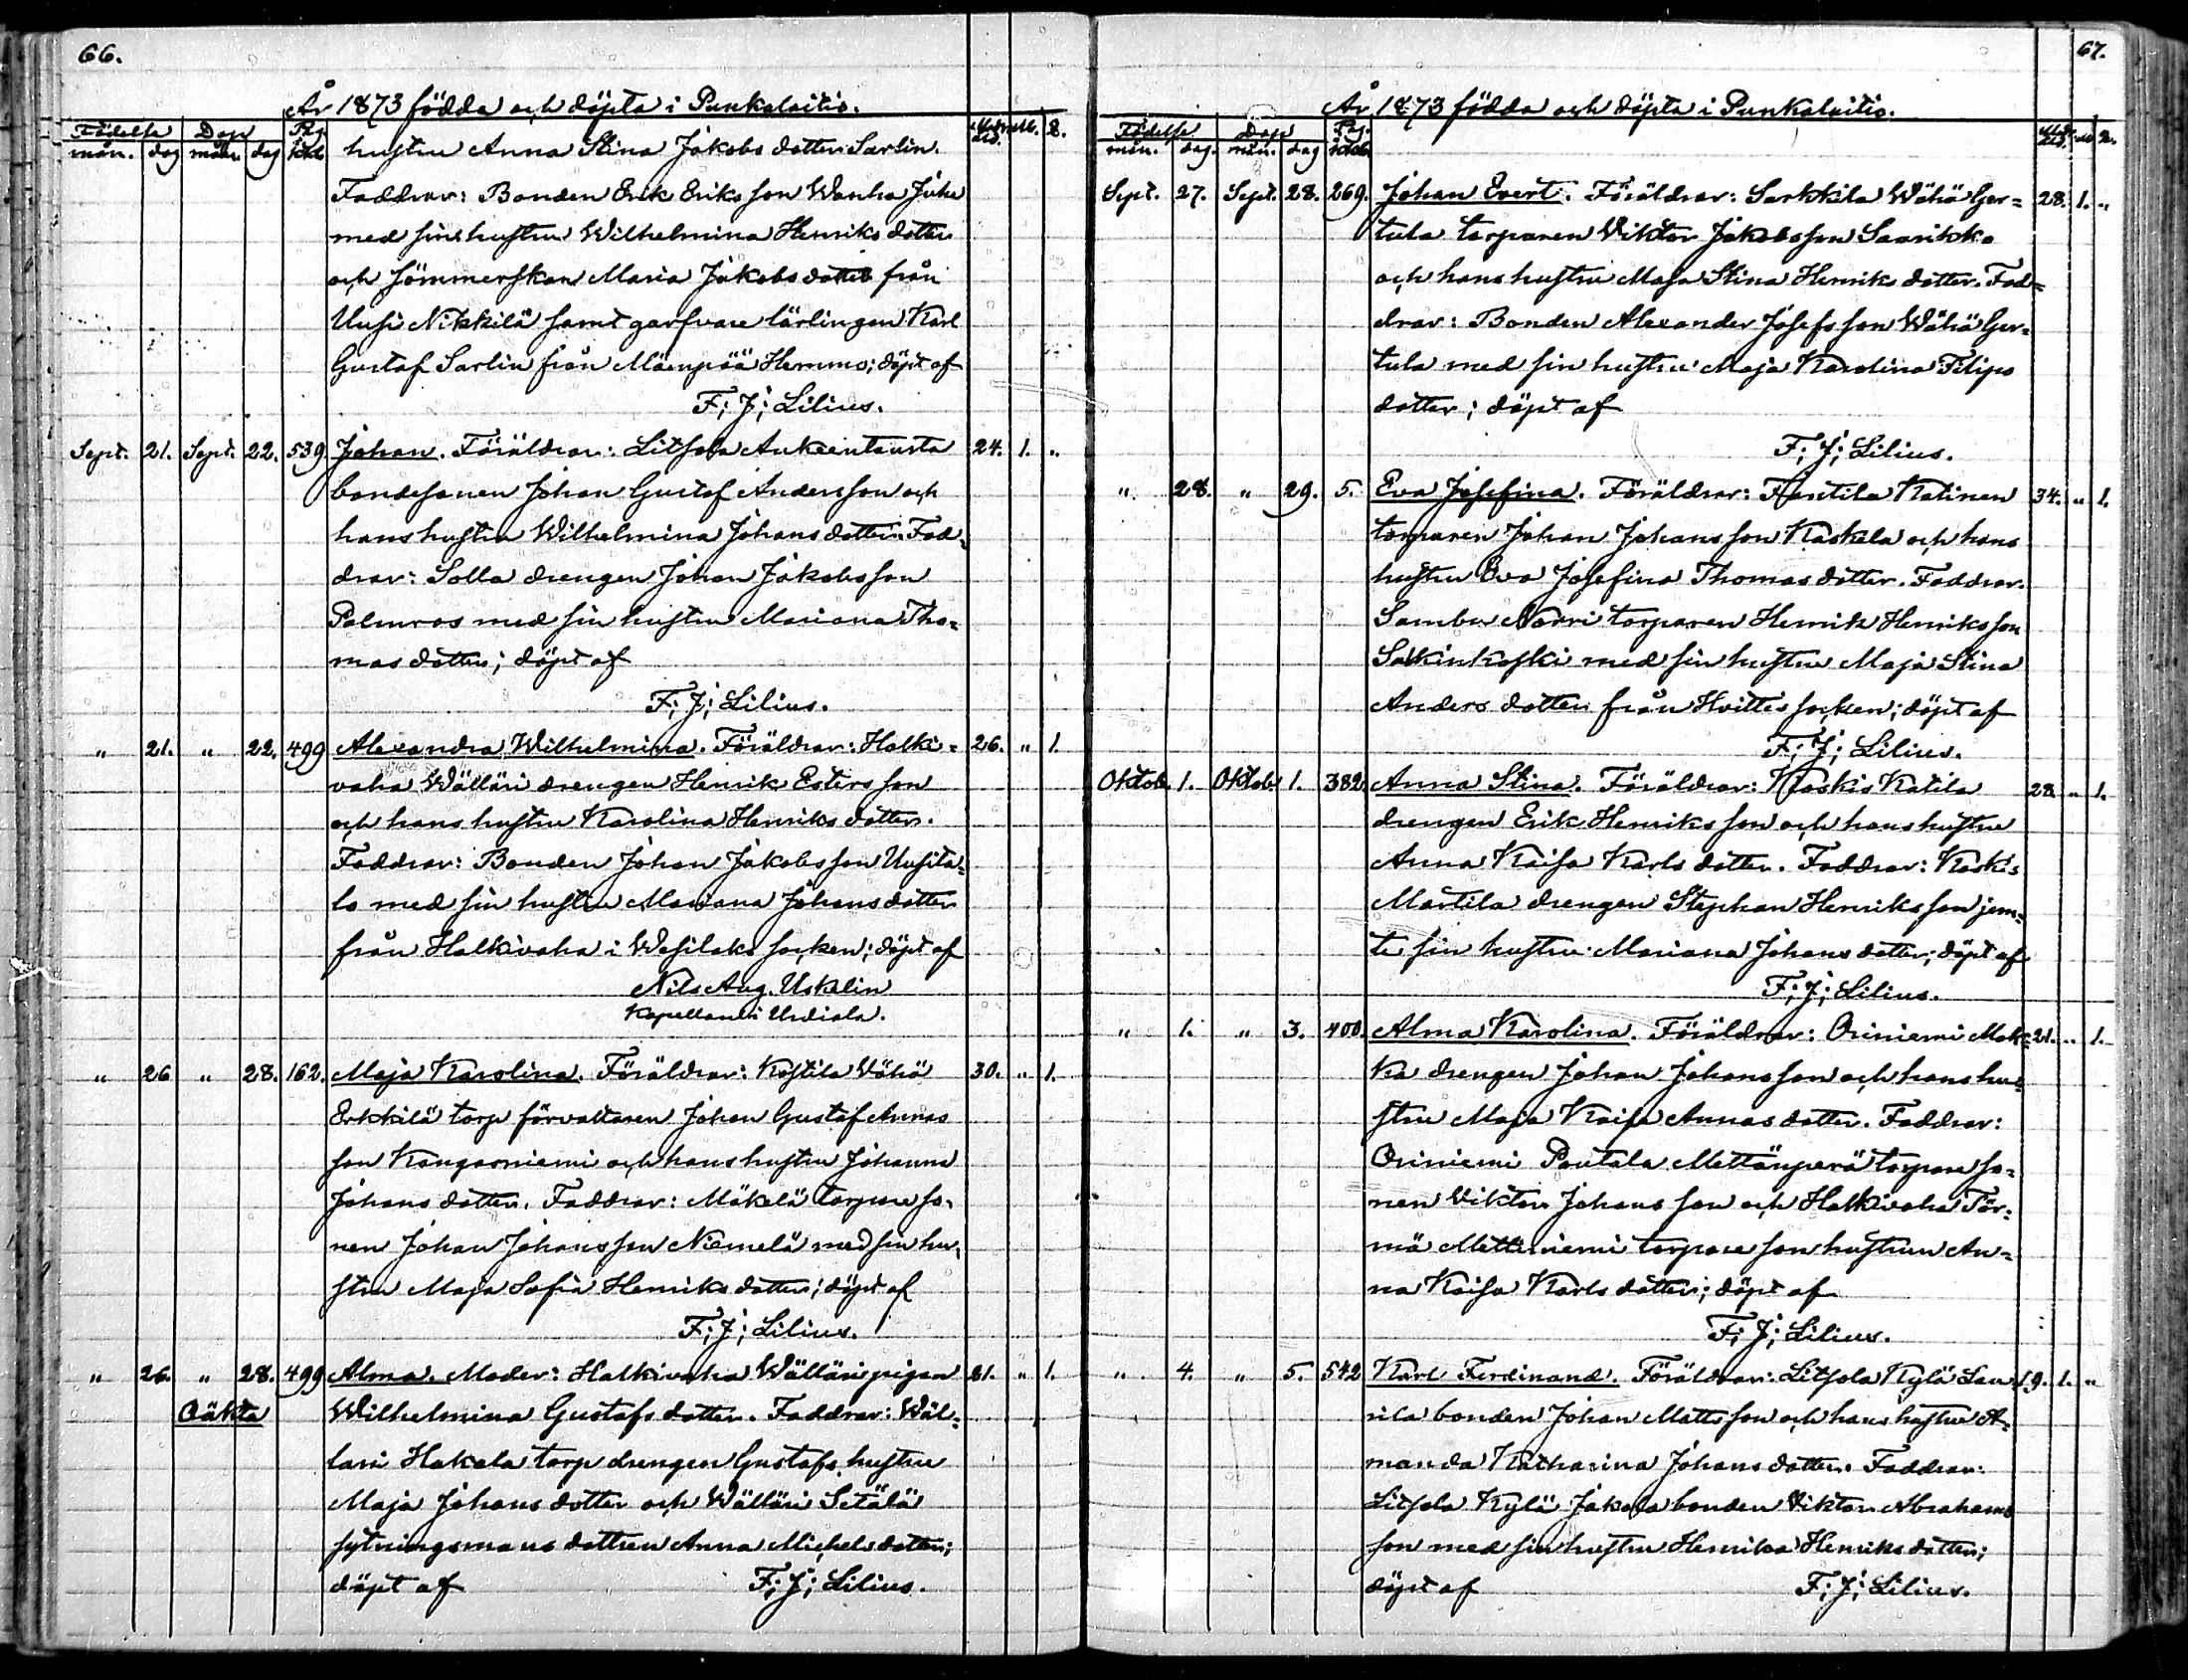 66.
År 1873 födda och döpta i Punkalaitio.
Födelse Dop Pag.
mån. dag mån. dag M. Q.
hustru Anna Stina Jakobs dotter Sarlin.
Faddrar: Bonden Erik Eriks son Wanha Juha
med sin hustru Wilhelmina Henriks dotter
och sömmerskan Maria Jakobs dotter från
Uusi Nikkilä samt garfvare lärlingen Karl
Gustaf Sarlin från Mäenpää Hemmo; döpt af
F; J; Lilius.
Sept. 21. Sept. 22. 539. Johan. Föräldrar: Litsola Ankeentausta 24. 1. "
bondesonen Johan Gustaf Anders son och
hans hustru Wilhelmina Johans dotter. Fad-
drar: Solla drengen Johan Jakobs son
Palmros med sin hustru Mariana Tho-
mas dotter; döpt af
F; J; Lilius.
" 21. " 22. 499 Alexandra Wilhelmina. Föräldrar: Halki- 26. " 1.
vaha Wälläri drengen Henrik Esters son
och hans hustru Karolina Henriks dotter.
Faddrar: Bonden Johan Jakobs son Uusita-
lo med sin hustru Mariana Johans dotter
från Halkivaha i Wesilaks socken; döpt af
Nils Aug. Uskelin
Kapellan i Urdiala.
" 26 " 28. 162. Maja Karolina. Föräldrar: Kostila Wähä 30. " 1.
Erkkilä torp förvaltaren Johan Gustaf Annas
son Kangasniemi och hans hustru Johanna
Johans dotter. Faddrar: Mäkelä torpare so-
nen Johan Johans son Niemelä med sin hu-
stru Maja Sofia Henriks dotter; döpt af
F; J; Lilius.
" 26. " 28. 499 Alma. Moder: Halkivaha Wälläri pigan 21. " 1.
Oäkta Wilhelmina Gustafs dotter. Faddrar: Wäl-
läri Hakala torp drengen Gustafs hustru
Maja Johans dotter och Wälläri Setälä
sytningsmans dottren Anna Michels dotter;
döpt af F; J; Lilius.
67.
År 1873 födda och döpta i Punkalaitio.
Födelse Dop Pag.
mån. dag. mån. dag
Sept. 27. Sept. 28. 269. Johan Evert. Föräldrar: Sarkkila Wähä Ger- 28. 1. "
tula torparen Viktor Jakobs son Saarikko
och hans hustru Maja Stina Henriks dotter. Fad-
drar: Bonden Alexander Josefs son Wähä Ger-
tula med sin hustru Maja Karolina Filips
dotter; döpt af
F; J; Lilius.
" 28. " 29. 5. Eva Josefina. Föräldrar: Fantila Katinen 34. " 1.
torparen Johan Johans son Kaskela och hans
hustru Eva Josefina Thomas dotter. Faddrar.
Sambu Norri torparen Henrik Henriks son
Salkinkoski med sin hustru Maja Stina
Anders dotter från Hvittis socken; döpt af
F; J; Lilius.
Oktob. 1. Oktob. 1. 382. Anna Stina. Föräldrar: Kaskis Katila 28. " 1.
drengen Erik Henriks son och hans hustru
Anna Kaisa Karls dotter. Faddrar: Kaskis
Martila drengen Stephan Henriks son jem-
te sin hustru Mariana Johans dotter; döpt af
F; J; Lilius.
" 1. " 3. 400. Alma Karolina. Föräldrar: Oriniemi Mak- 21. " 1.
ka drengen Johan Johans son och hans hu-
stru Maja Kaisa Annas dotter. Faddrar:
Oriniemi Poutala Mettänperä torpare so-
nen Viktor Johans son och Halkivaha Tör-
mä Mettiniemi torpare son hustrun An-
na Kaisa Karls dotter; döpt af
F; J; Lilius.
" 4. " 5. 542 Karl Ferdinand. Föräldrar: Litsola Kylä Lau- 19. 1. "
rila bonden Johan Matts son och hans hustru A-
manda Katharina Johans dotter. Faddrar:
Litsola Kylä Jakola bonden Viktor Abrahams
son med sin hustru Henrika Henriks dotter;
döpt af F; J; Lilius.